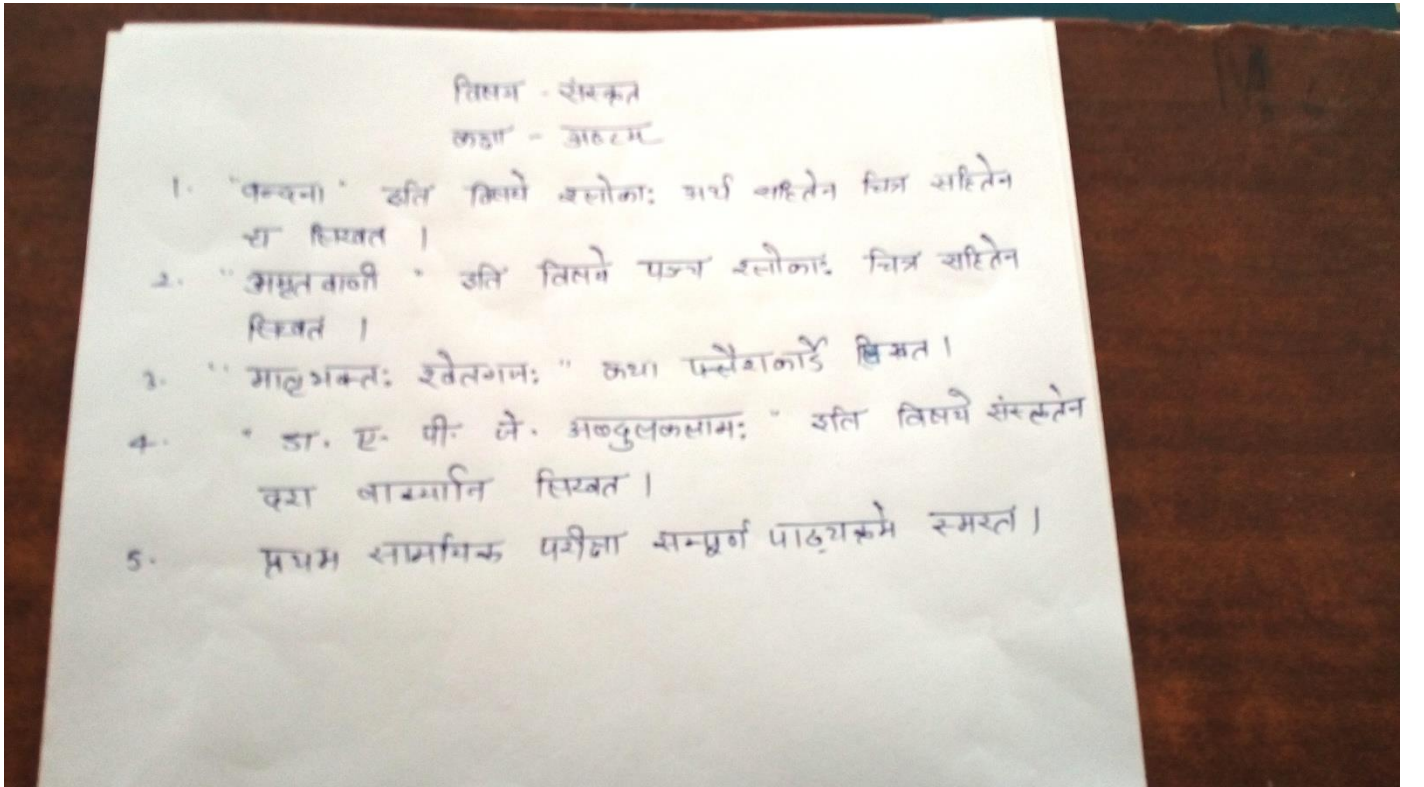 विषय - संस्कृत
कक्षा - अष्टम
1. "वन्दना" इति विषये श्लोका: अर्थ सहितेन चित्र सहितेन
च लिखत ।
2. "अमृतवाणी" इति विषये पञ्च श्लोका: चित्र सहितेन
लिखत ।
3. "मातृभक्त: श्वेतगज:" कथा फ्लैशकार्डे लिखत ।
4. "डा. ए. पी. जे. अब्दुलकलाम:" इति विषये संस्कृतेन
दश वाक्यानि लिखत ।
5. प्रथम सामयिक परीक्षा सम्पूर्ण पाठ्यक्रमे स्मरत ।